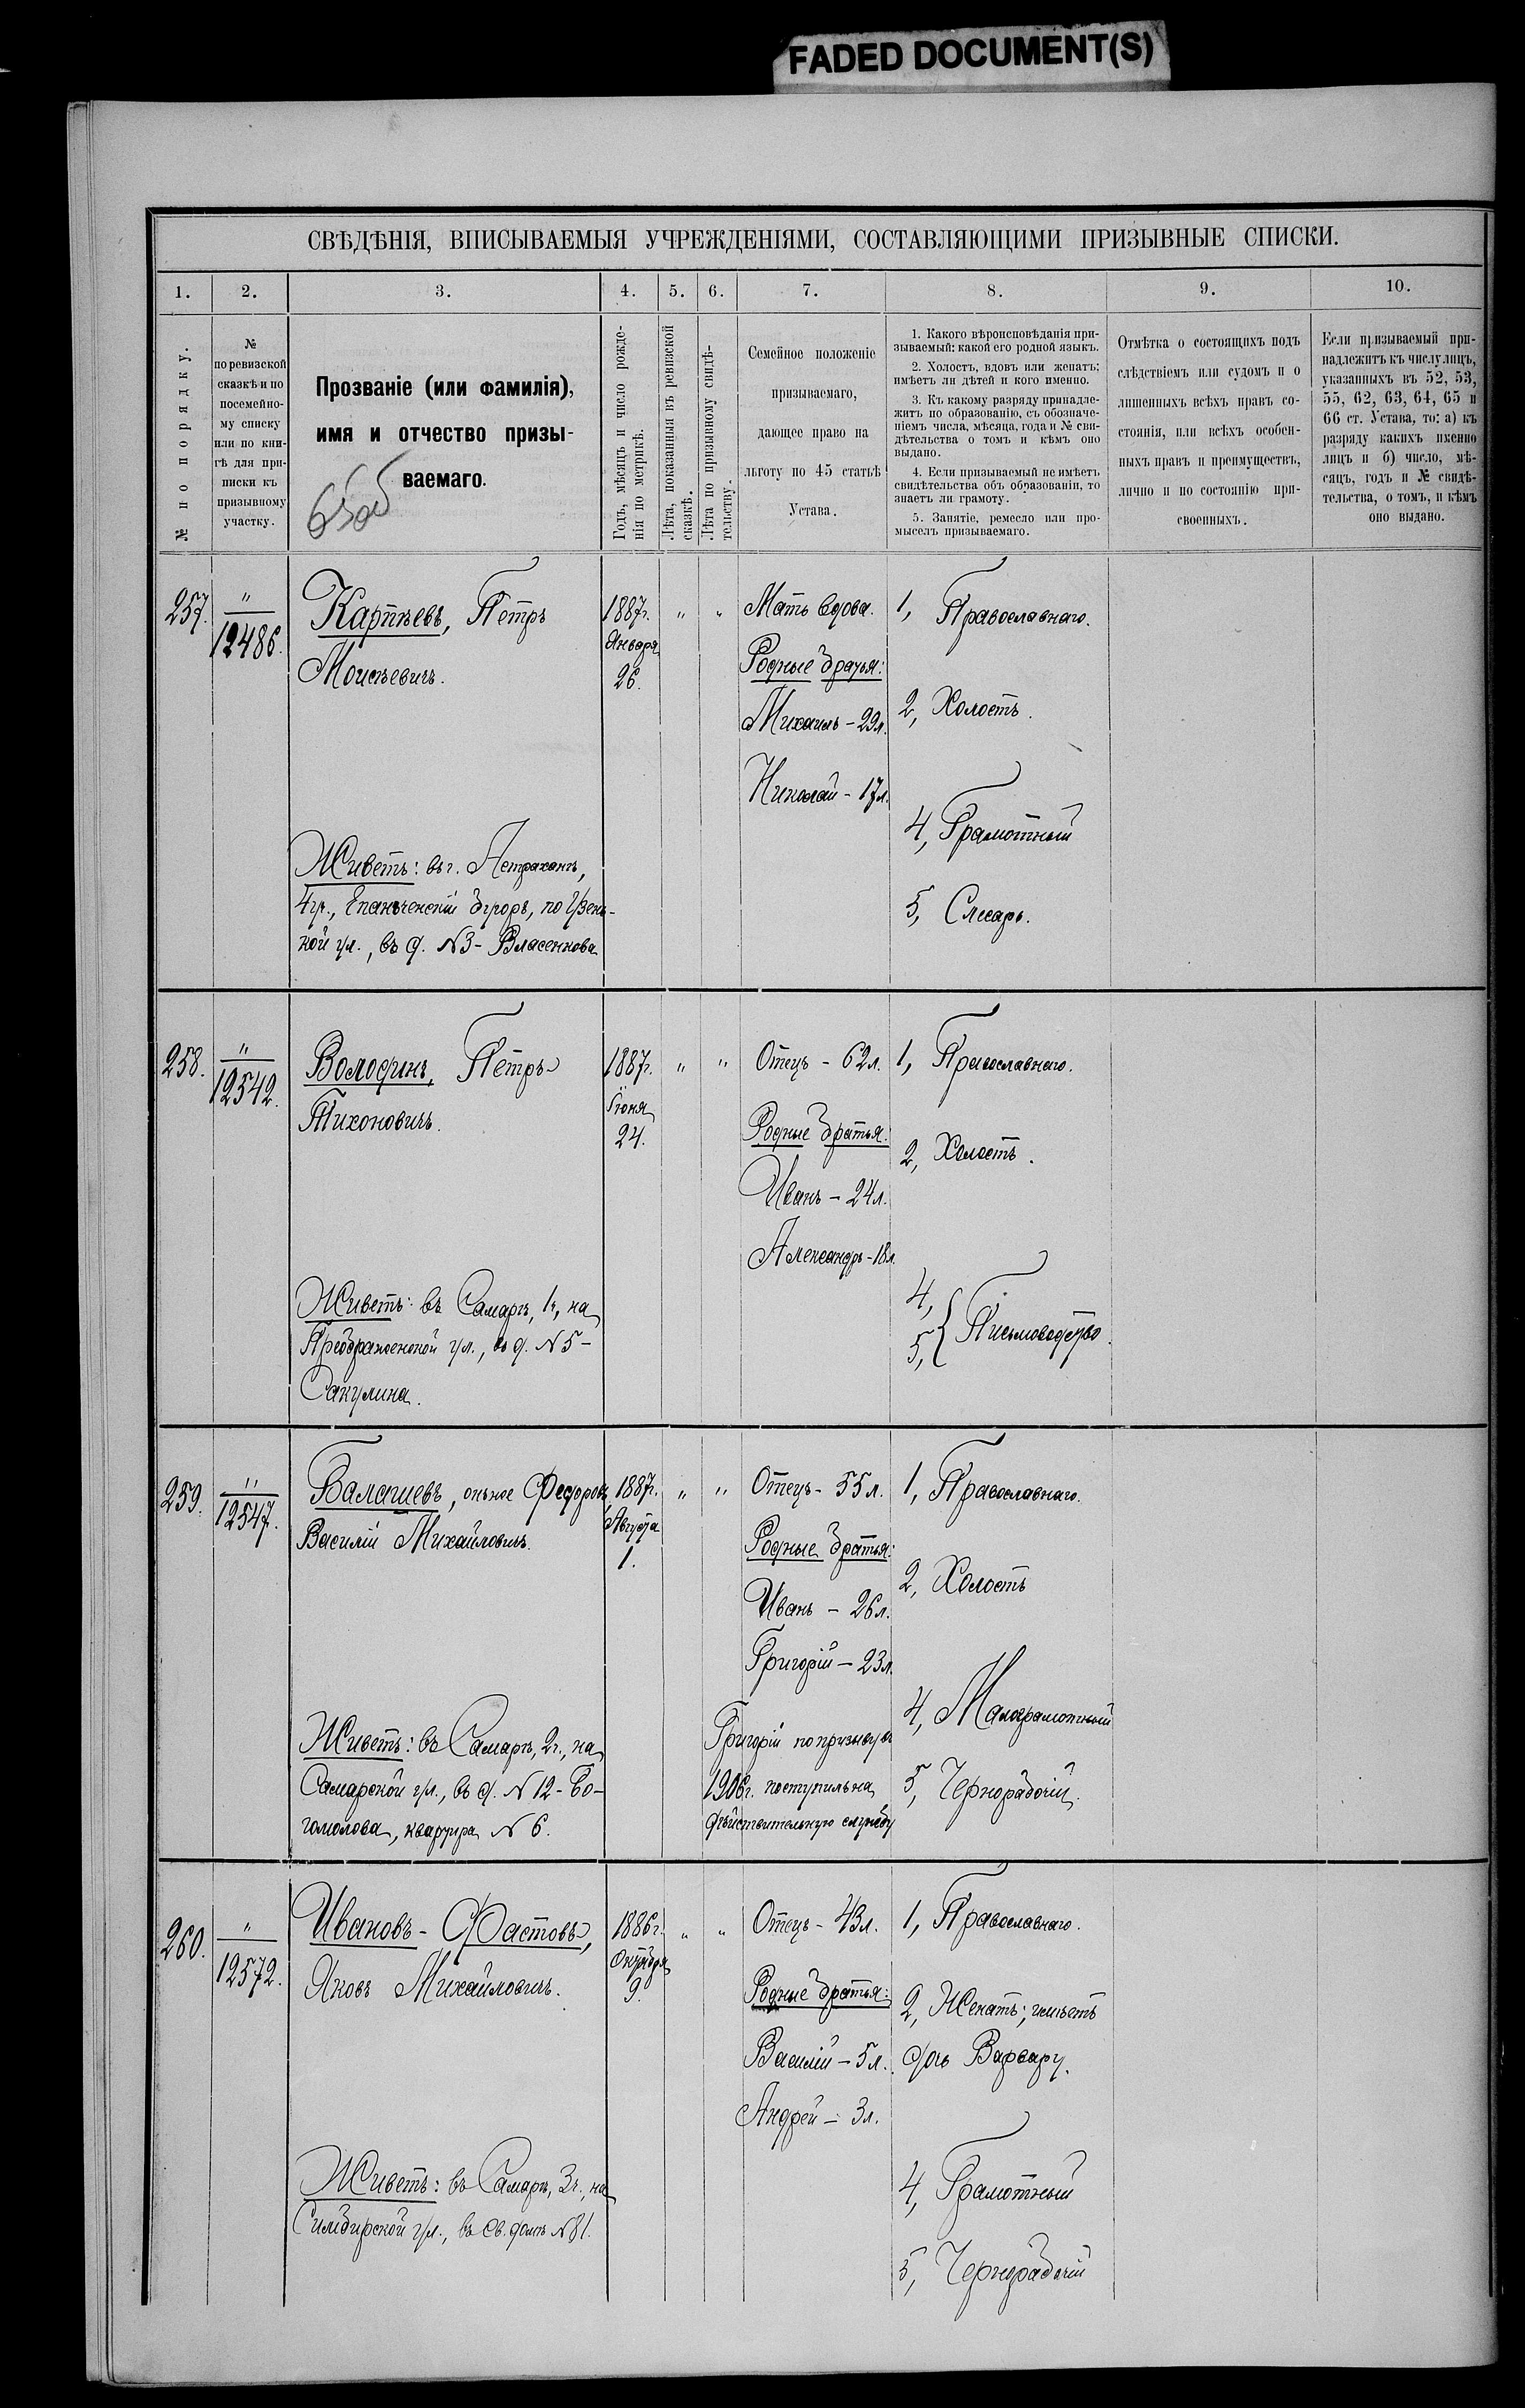 FADED DOCUMENT(S)
СВѢДѢНІЯ, ВПИСЫВАЕМЫЯ УЧРЕЖДЕНІЯМИ, СОСТАВЛЯЮЩИМИ ПРИЗЫВНЫЕ СПИСКИ.
1. 2. 3. 4. 5. 6. 7. 8. 9. 10.
№ по порядку.
№
по ревизской
сказкѣ и по
посемейно-
му списку
или по кни-
гѣ для при-
писки къ
призывному
участку.
Прозваніе (или фамилія),
имя и отчество призы-
ваемаго.
Годъ, мѣсяцъ и число рожде-
нія по метрикѣ.
Лѣта, показанныя въ ревизской
сказкѣ.
Лѣта по призывному свидѣ-
тельству.
Семейное положеніе
призываемаго,
дающее право на
льготу по 45 статьѣ
Устава.
1. Какого вѣроисповѣданія при-
зываемый: какой его родной языкъ.
2. Холостъ, вдовъ или женатъ;
имѣетъ ли дѣтей и кого именно.
3. Къ какому разряду принадле-
житъ по образованію, съ обозначе-
ніемъ числа, мѣсяца, года и № сви-
дѣтельства о томъ и кѣмъ оно
выдано.
4. Если призываемый не имѣетъ
свидѣтельства объ образованіи, то
знаетъ ли грамоту.
5. Занятіе, ремесло или про-
мыселъ призываемаго.
Отмѣтка о состоящихъ подъ
слѣдствіемъ или судомъ и о
лишенныхъ всѣхъ правъ со-
стоянія, или всѣхъ особен-
ныхъ правъ и преимуществъ,
лично и по состоянію при-
своенныхъ.
Если призываемый при-
надлежитъ къ числу лицъ,
указанныхъ въ 52, 53,
55, 62, 63, 64, 65 и
66 ст. Устава, то: а) къ
разряду какихъ именно
лицъ и б) число, мѣ-
сяцъ, годъ и № свидѣ-
тельства, о томъ, и кѣмъ
оно выдано.
257. " 12486.
Картѣевъ, Петръ
Моисѣевичъ.
Живетъ: въ г. Астрахани,
4 гр., бугоръ, по
ной ул., въ д. №3- Власенкова
1887г.
Января
26.
" "
Мать вдова.
Родные братья:
Михаилъ - 29л.
Николай - 17л.
1, Православнаго.
2, Холостъ.
4, Грамотный
5, Слесарь.
258. " 12542.
Володинъ, Петръ
Тихоновичъ.
Живетъ: въ Самарѣ, 1ч, на
Преображенской ул., въ д. №5-
Сакулина.
1887г.
Іюня
24.
" "
Отецъ - 62л.
Родные братья:
Иванъ - 24л.
Александръ - 18л.
1, Православнаго.
2, Холостъ.
4,
5, { Письмоводство.
259. " 12547.
Балашевъ, онъ же Федоровъ,
Василій Михайловичъ.
Живетъ: въ Самарѣ, 2ч., на
Самарской ул., въ д. №12- Бо-
гомолова, квартира №6.
1887г.
Августа
1.
" "
Отецъ - 55л.
Родные братья:
Иванъ - 26л.
Григорій - 23л.
Григорій по призыву
1906г. поступилъ на
дѣйствительную службу
1, Православнаго.
2, Холостъ
4, Малограмотный
5, Чернорабочій.
260. " 12572.
Ивановъ - Фастовъ,
Яковъ Михайловичъ.
Живетъ: въ Самарѣ, 3ч., на
Симбирской ул., въ св. домѣ №81.
1886г.
Октября
9.
" "
Отецъ - 43л.
Родные братья:
Василій - 5л.
Андрей - 3л.
1, Православнаго.
2, Женатъ; имѣетъ
дочь Варвару.
4, Грамотный
5, Чернорабочій